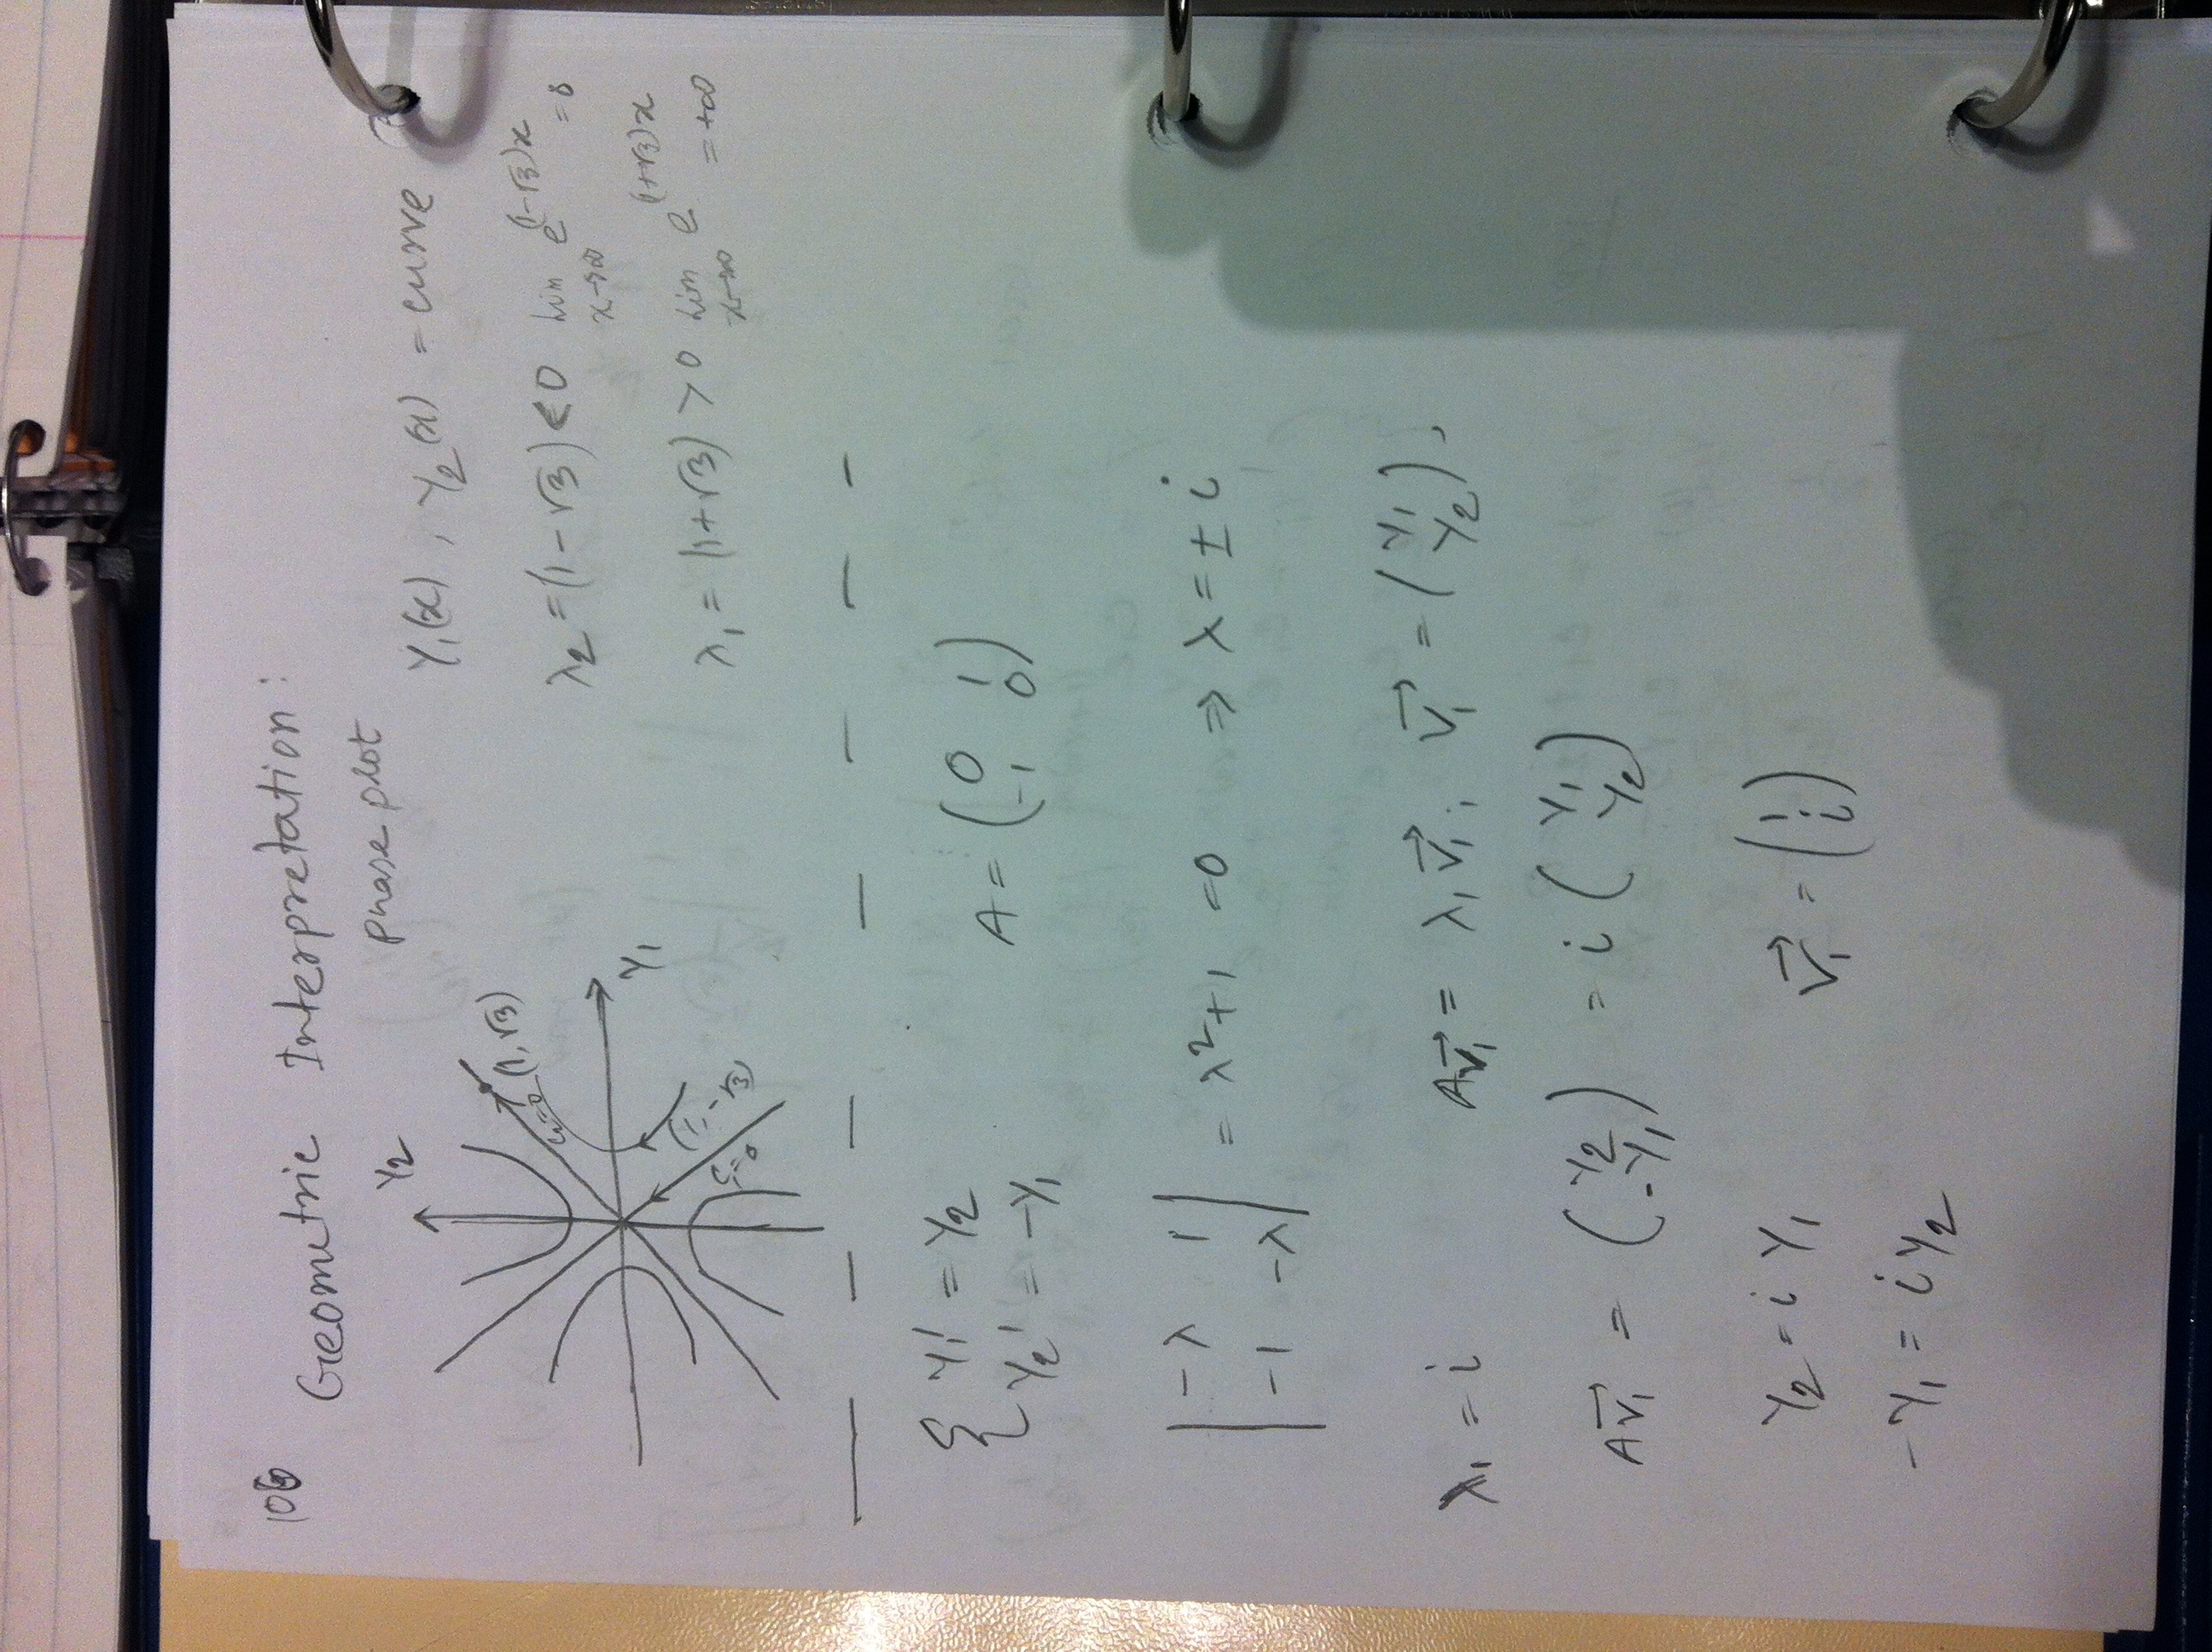 106 Geometric Interpretation:
phase plot
Y₂
Y₁(x), Y₂(x) = curve
(1, √3)
λ₂ = (1 - √3) < 0 lim x→∞ e^(1-√3)x = 0
Y₁
(1, -√3)
c₁=0
λ₁ = (1+√3) > 0 lim x→∞ e^(1+√3)x = +∞
{ Y₁' = Y₂
Y₂' = -Y₁
A = ( 0 1
-1 0 )
| -λ 1
-1 -λ | = λ²+1 = 0 ⇒ λ = ± i
λ₁ = i A v₁→ = λ₁ v₁→; v₁→ = ( Y₁
Y₂ ),
A v₁→ = ( Y₂
-Y₁ ) = i ( Y₁
Y₂ )
Y₂ = i Y₁
v₁→ = ( 1
i )
-Y₁ = i Y₂